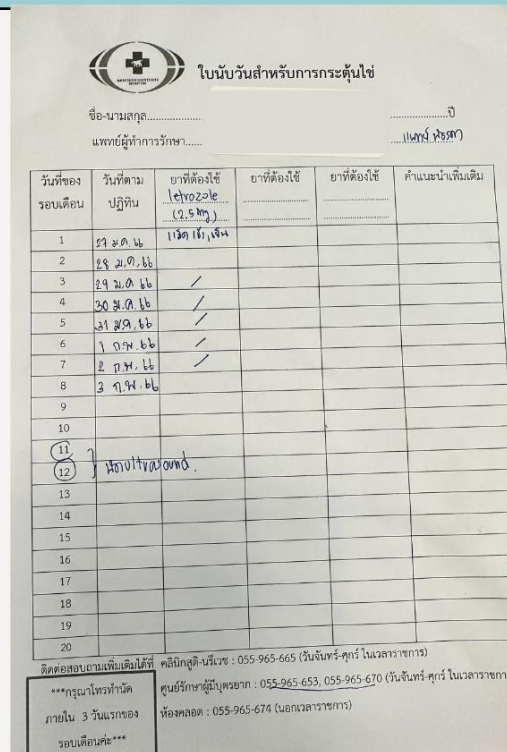 ใบนับวันสำหรับการกระตุ้นไข่
ชื่อ-นามสกุล.................. ....................ปี
แพทย์ผู้ทำการรักษา...... แพทย์
วันที่ของรอบเดือน วันที่ตามปฏิทิน ยาที่ต้องใช้ letrozole (2.5 mg) ยาที่ต้องใช้ ............... ยาที่ต้องใช้ ............... คำแนะนำเพิ่มเติม
1 27 ม.ค. 66 1 เม็ด เช้า, เย็น
2 28 ม.ค. 66
3 29 ม.ค 66 /
4 30 ม.ค. 66 /
5 31 ม.ค. 66 /
6 1 ก.พ. 66 /
7 2 ก.พ. 66 /
8 3 ก.พ. 66
9
10
11
12 } ultrasound.
13
14
15
16
17
18
19
20
ติดต่อสอบถามเพิ่มเติมได้ที่ คลินิกสูติ-นรีเวช : 055-965-665 (วันจันทร์-ศุกร์ ในเวลาราชการ)
ศูนย์รักษาผู้มีบุตรยาก : 055-965-653, 055-965-670 (วันจันทร์-ศุกร์ ในเวลาราชกา
ห้องคลอด : 055-965-674 (นอกเวลาราชการ)
***กรุณาโทรทำนัด
ภายใน 3 วันแรกของ
รอบเดือนค่ะ***